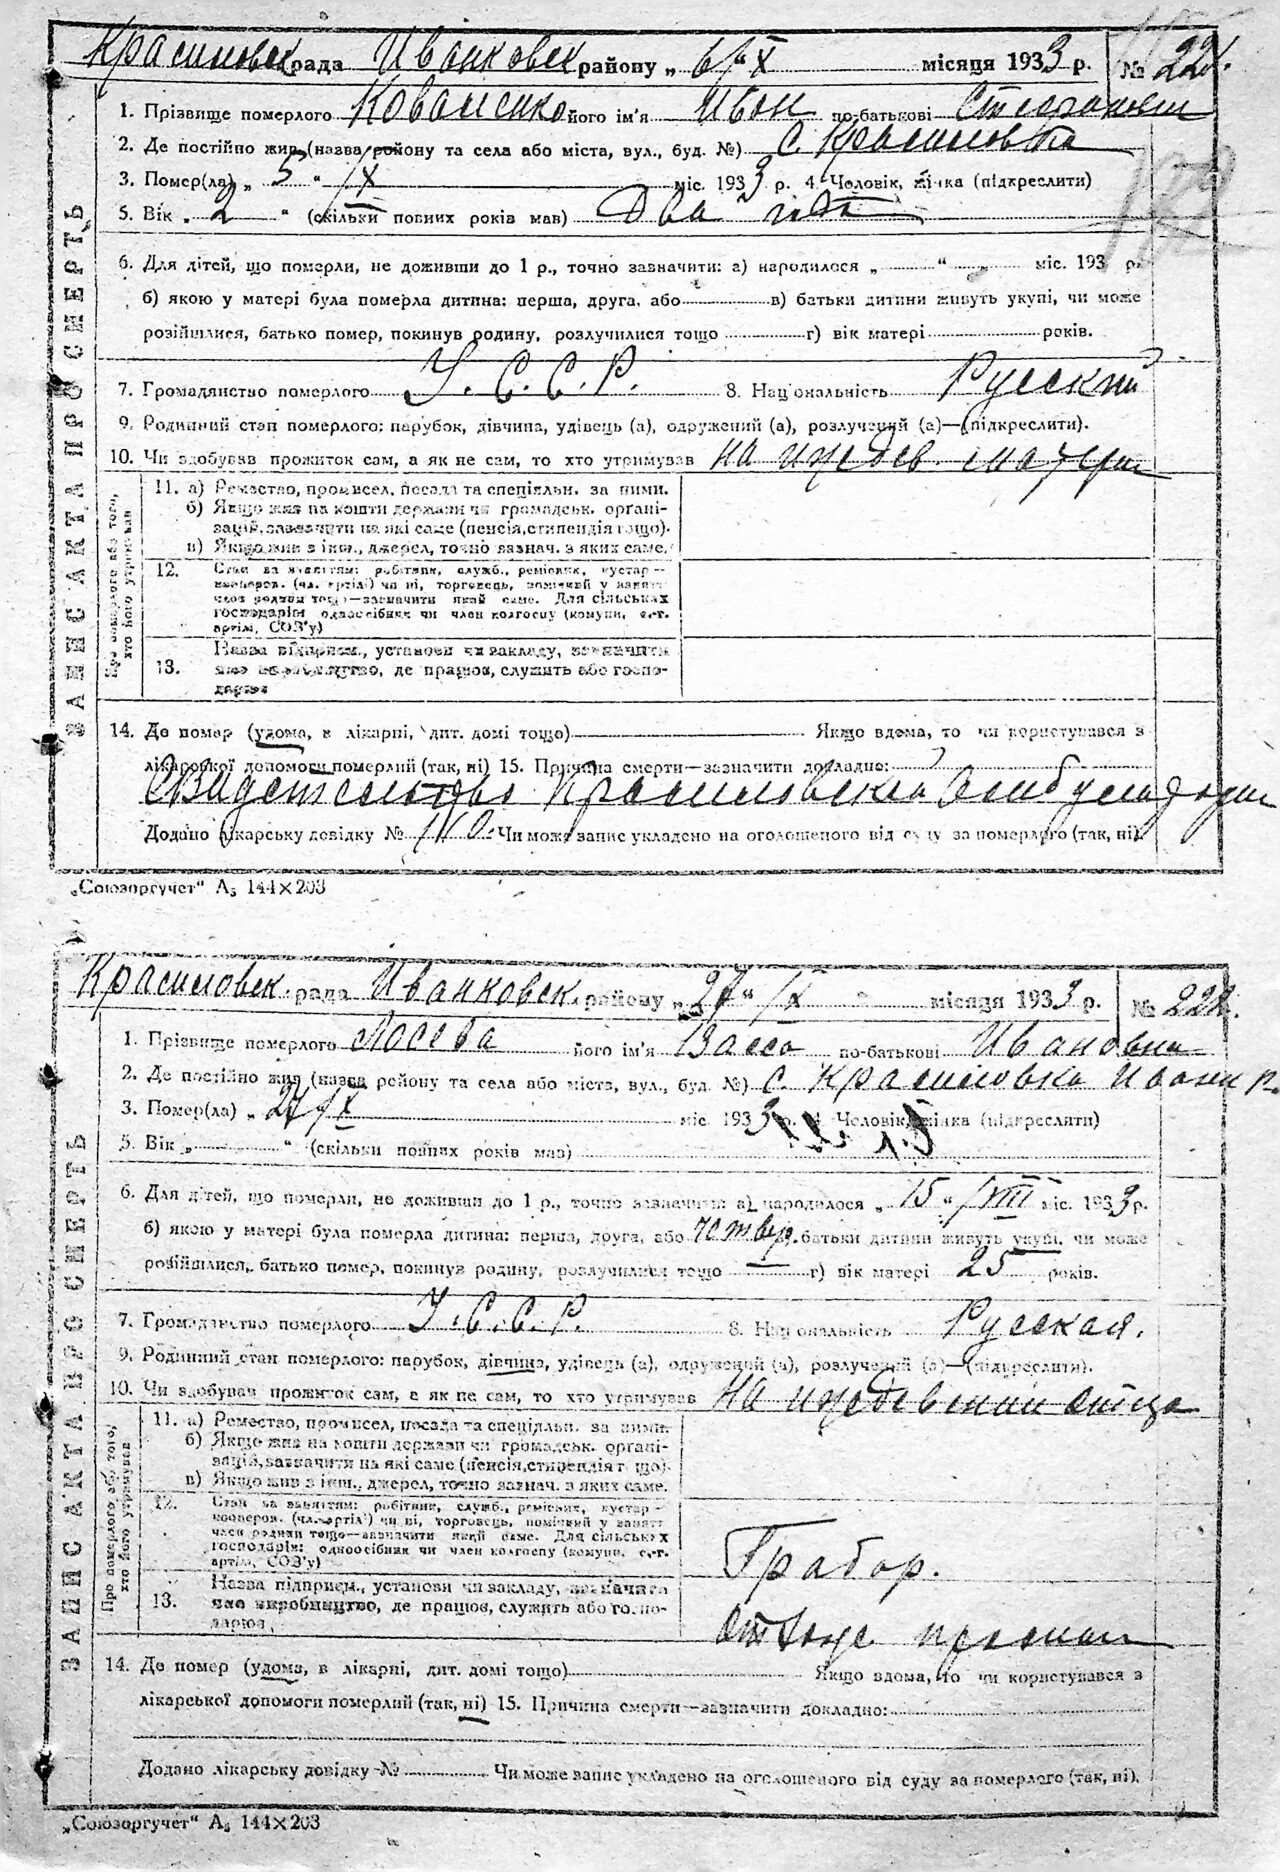 Красиловск рада Иванковск району „ 6/" X місяця 1933 р. № 221.
ЗАПИС АКТА ПРО СМЕРТЬ
1. Прізвище померлого Коваленко його ім'я Иван по-батькові
2. Де постійно жив (назва району та села або міста, вул., буд. №) с. Красиловка
3. Помер(ла) „ 5 " /X міс. 1933 р. 4. Человік, жінка (підкреслити)
5. Вік „ 2 " (скільки повних років мав) Два года
6. Для дітей, що померли, не доживши до 1 р., точно зазначити: а) народилося „ " „ міс. 193 р.
б) якою у матері була померла дитина: перша, друга, або в) батьки дитини живуть укупі, чи може
розійшлися, батько помер, покинув родину, розлучилися тощо г) вік матері років.
7. Громадянство померлого У. С. С. Р. 8. Національність Русский
9. Родинний стан померлого: парубок, дівчина, удівець (а), одружений (а), розлучений (а)—(підкреслити).
10. Чи здобував прожиток сам, а як не сам, то хто утримував на иждев. матери
Про померлого або того, хто його утримував
11. а) Ремество, промисел, посада та спеціяльн. за ними.
б) Якщо жив на кошти держави чи громадськ. органі-
зацій, зазначити на які саме (пенсія, стипендія тощо).
в) Якщо жив з інш., джерел, точно зазнач. з яких саме.
12. Стан за заняттям: робітник, служб., ремісник, кустар—
кооперов. (чл. артілі) чи ні, торговець, помічний у занятт
чвоя родини тощо—зазначити який саме. Для сільських
господарів: одноосібник чи член колгоспу (комуни, с.-г.
артілі, СОЗ'у)
13. Назва підприєм., установи чи закладу, зазначити
яке виробництво, де працюв, служить або госпо-
дарює
14. Де помер (удома, в лікарні, дит. домі тощо) Якщо вдома, то чи користувався з
лікарської допомоги померлий (так, ні) 15. Причина смерти—зазначити докладно:
Свидетельство Красиловской
Додано лікарську довідку № Чи може запис укладено на оголошеного від суду за померлого (так, ні).
„Союзоргучет" А₅ 144×203
Красиловск. рада Иванковск. району „ 27" /IX " місяця 1933 р. № 222.
ЗАПИС АКТА ПРО СМЕРТЬ
1. Прізвище померлого Лосева його ім'я Васса по-батькові Ивановна
2. Де постійно жив (назва району та села або міста, вул., буд. №) с. Красиловка Иванк р.
3. Помер(ла) „ 27 /IX міс. 1933 р. 4. Человік, жінка (підкреслити)
5. Вік „ " (скільки повних років мав)
6. Для дітей, що померли, не доживши до 1 р., точно зазначити: а) народилося „ 15 " /VIII міс. 1933 р.
б) якою у матері була померла дитина: перша, друга, або четвер. батьки дитини живуть укупі, чи може
розійшлися, батько помер, покинув родину, розлучилися тощо — г) вік матері 25 років.
7. Громадянство померлого У. С. С. Р. 8. Національність Русская.
9. Родинний стан померлого: парубок, дівчина, удівець (а), одружений (а), розлучений (а)—(підкреслити).
10. Чи здобував прожиток сам, а як не сам, то хто утримував на иждевении отца
Про померлого або того, хто його утримував
11. а) Ремество, промисел, посада та спеціяльн. за ними.
б) Якщо жив на кошти держави чи громадськ. органі-
зацій, зазначити на які саме (пенсія, стипендія тощо).
в) Якщо жив з інш., джерел, точно зазнач. з яких саме.
12. Стан за заняттям: робітник, служб., ремісник, кустар—
кооперов. (чл. артілі) чи ні, торговець, помічний у занятт
чвоя родини тощо—зазначити який саме. Для сільських
господарів: одноосібник чи член колгоспу (комуни, с.-г.
артілі, СОЗ'у)
Грабор.
13. Назва підприєм., установи чи закладу, зазначити
яке виробництво, де працюв, служить або госпо-
дарює
14. Де помер (удома, в лікарні, дит. домі тощо) Якщо вдома, то чи користувався з
лікарської допомоги померлий (так, ні) 15. Причина смерти—зазначити докладно:
Додано лікарську довідку № Чи може запис укладено на оголошеного від суду за померлого (так, ні).
„Союзоргучет" А₅ 144×203